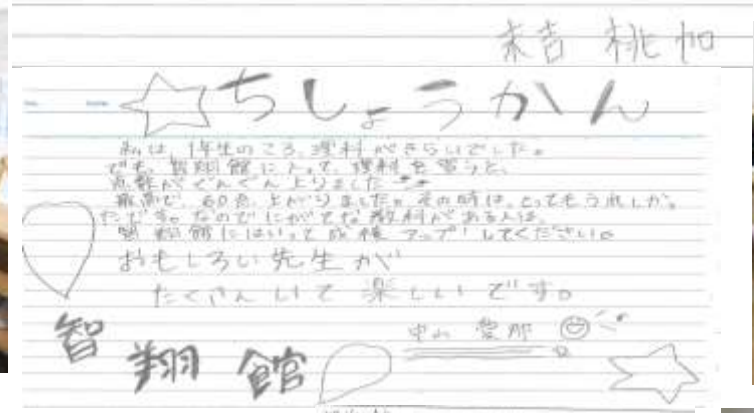 末吉 桃加
ちしょうかん
私は、1年生のころ、理科がきらいでした。
でも、智翔館に入って、理科を習うと、
点数がぐんぐん上りました
最高で、60点上がりました。その時は、とってもうれしかっ
たです。なのでにがてな教科がある人は、
智翔館にはいって成積アップしてください。
おもしろい先生が
たくさんいて楽しいです。
智翔館
中山 愛那